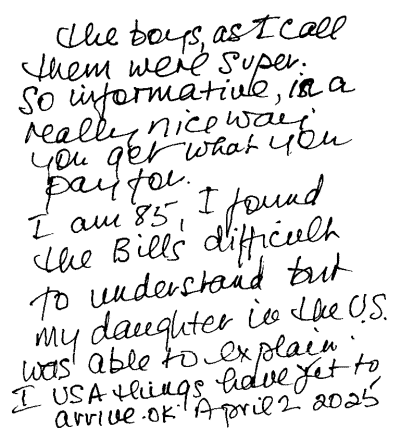 the boys, as I call
them were super.
So informative, in a
really nice way.
you get what you
pay for.
I am 85, I found
the Bills difficult
to understand but
my daughter in the U.S.
was able to explain.
I USA things have yet to
arrive. OK April 2 2025